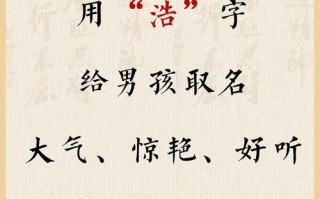 用“浩”字
给男孩取名
大气、惊艳、好听